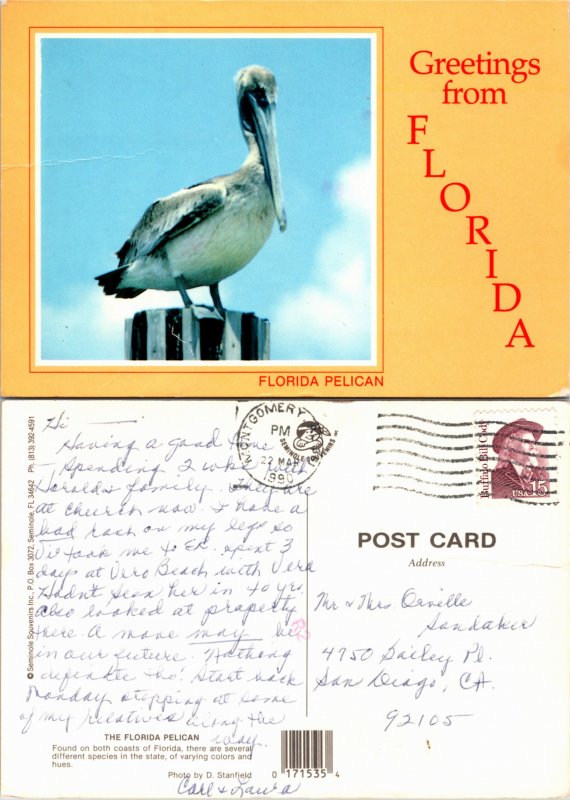 Greetings
from
FLORIDA
FLORIDA PELICAN
Hi
Having a good time
Spending 2 wks with
Gerald & family. They are
at church now. I have a
bad rash on my legs so
took me to ER. spent 3
days at Vero Beach with Vera
Hadn't seen her in 40 yrs.
also looked at property
here. A move may be
in our future. Nothing
definite tho. Start back
Monday stopping at some
of my relatives along the
way.
Carl & Laura
THE FLORIDA PELICAN
Found on both coasts of Florida, there are several
different species in the state, of varying colors and
hues.
Photo by D. Stanfield
© Seminole Souvenirs Inc., P.O. Box 3072, Seminole, FL 34642 Ph. (813) 392-4591
SEMINOLE SOUVENIRS INC.
0 171535 4
MONTGOMERY
PM
22 MAR
1990
Buffalo Bill Cody
USA 15
POST CARD
Address
Mr & Mrs. Orville
Sandaker
4750 Dailey Pl.
San Diego, CA.
92105